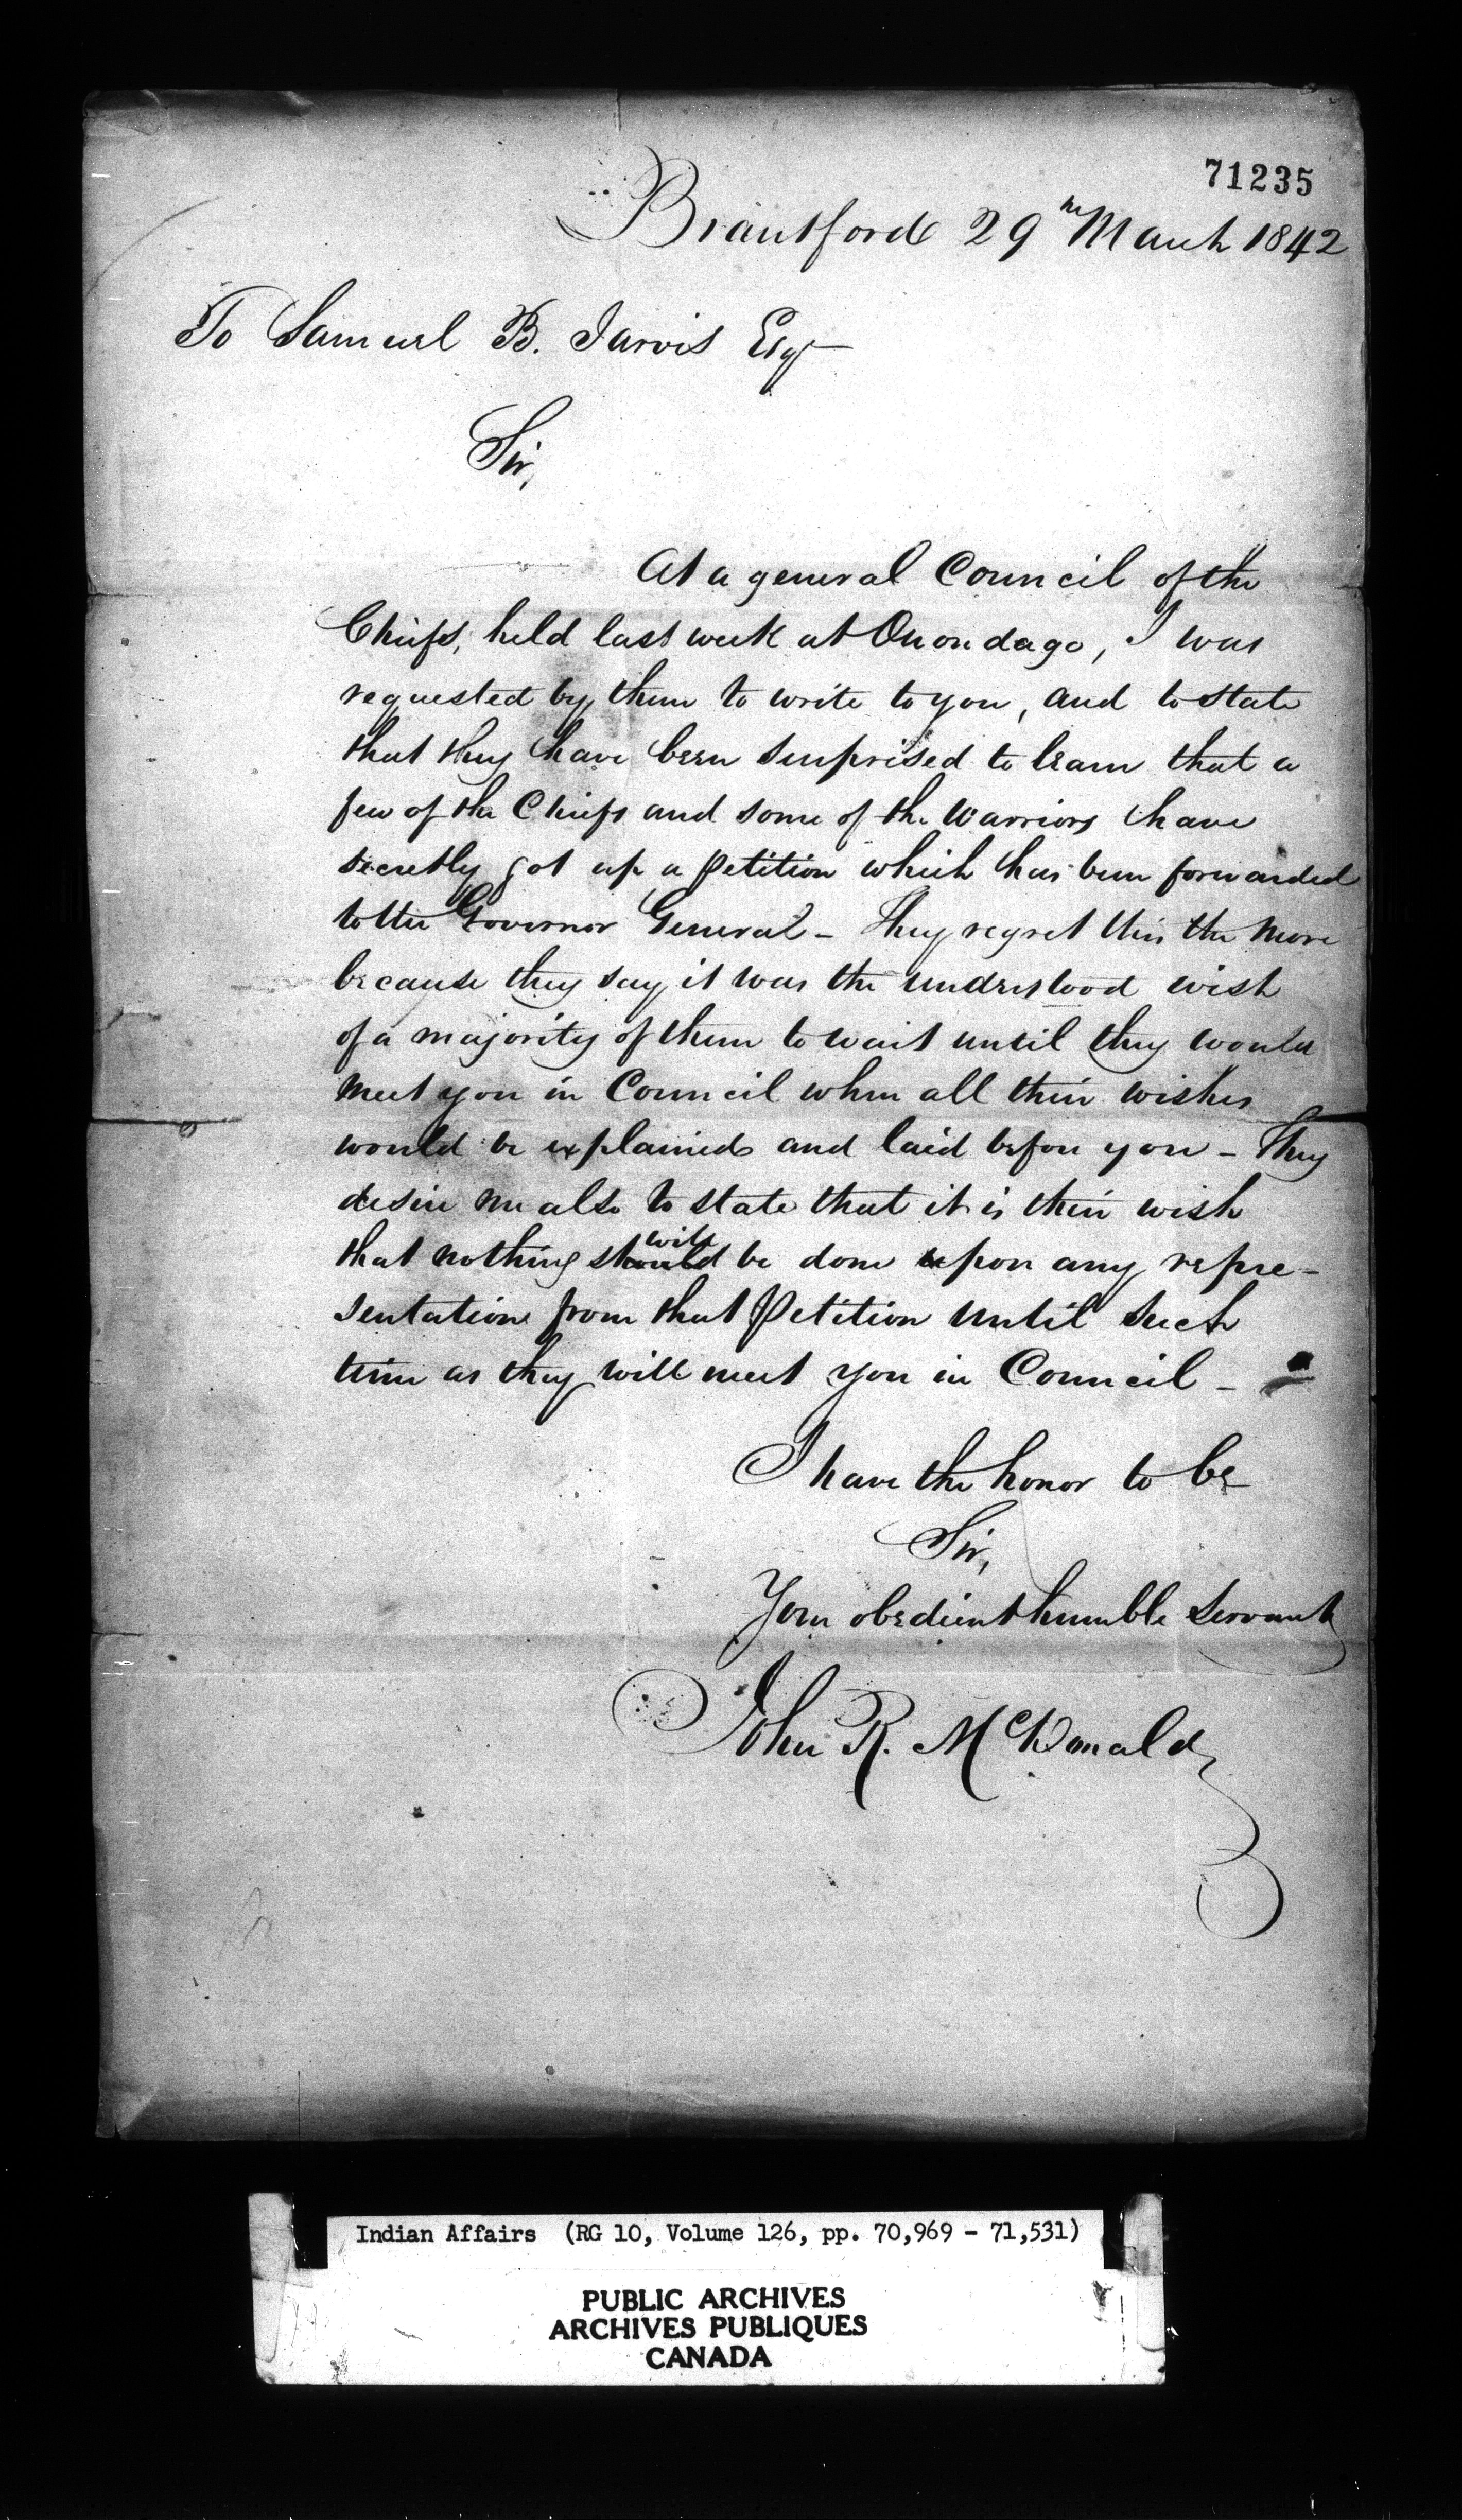 71235
Brantford 29th March 1842
To Samuel B. Jarvis Esqr
Sir,
At a general Council of the
Chiefs, held last week at Onondago, I was
requested by them to write to you, and to state
that they have been surprised to learn that a
few of the Chiefs and some of the Warriors have
secretly got up a Petition which has been forwarded
to the Governor General - They regret this the more
because they say it was the understood wish
of a majority of them to wait until they would
meet you in Council when all their wishes
would be explained and laid before you - They
desire me also to state that it is their wish
will
that nothing should be done upon any repre-
sentation from that Petition until such
time as they will meet you in Council -
I have the honor to be
Sir,
Your obedient humble Servant
John R. McDonald
Indian Affairs (RG 10, Volume 126, pp. 70,969 - 71,531)
PUBLIC ARCHIVES
ARCHIVES PUBLIQUES
CANADA